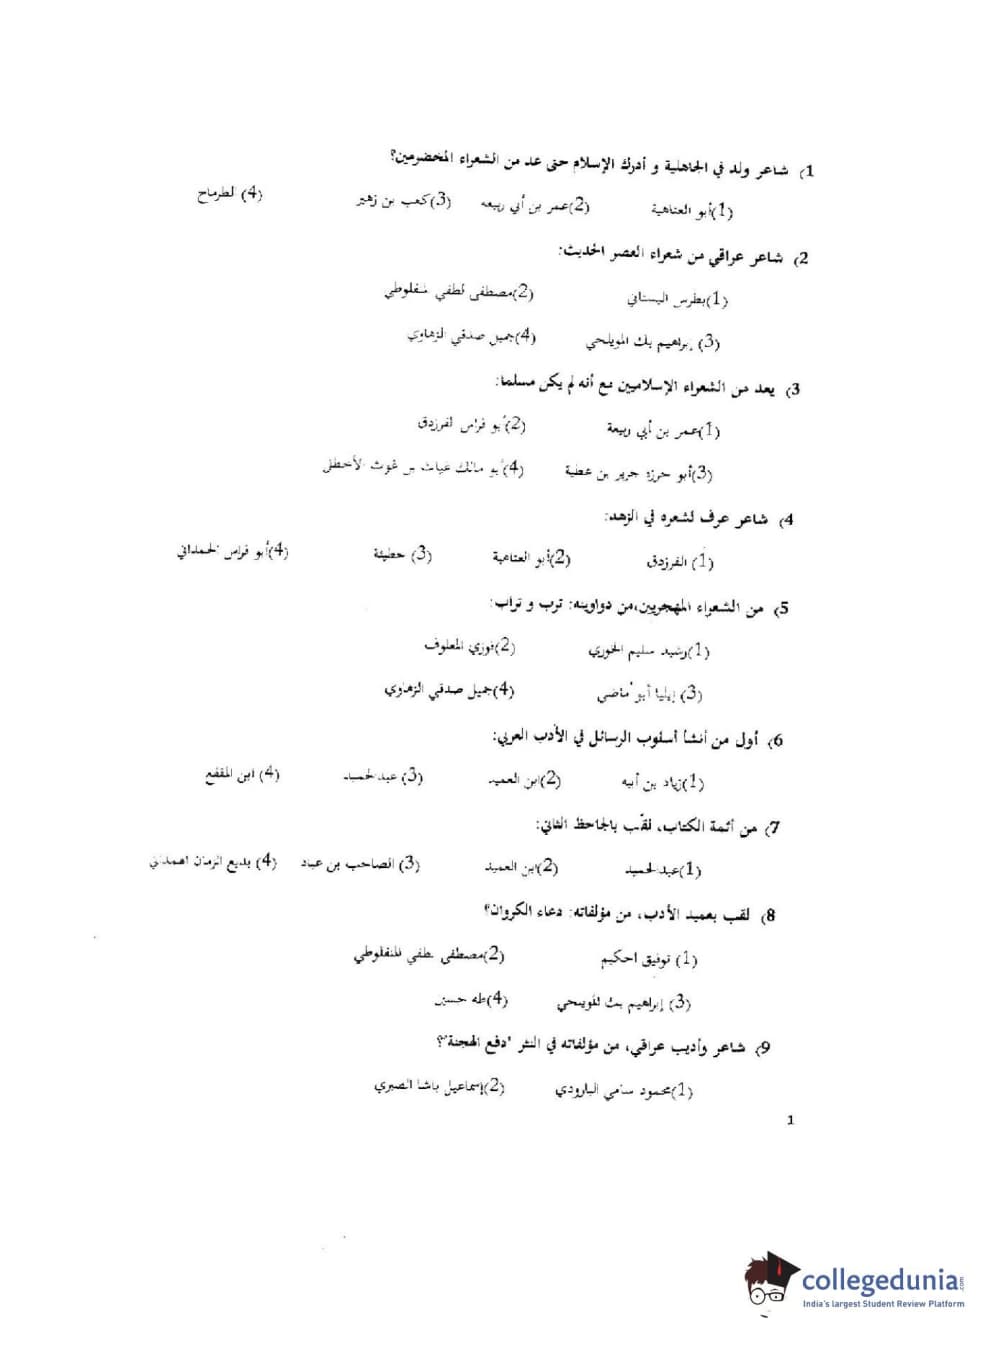 1) شاعر ولد في الجاهلية و أدرك الإسلام حتى عد من الشعراء المخضرمين؟
(1) أبو العتاهية (2) عمر بن أبي ربيعه (3) كعب بن زهير (4) الطرماح
2) شاعر عراقي من شعراء العصر الحديث:
(1) بطرس البستاني (2) مصطفى لطفي المنفلوطي
(3) إبراهيم بك المويلحي (4) جميل صدقي الزهاوي
3) يعد من الشعراء الإسلاميين مع أنه لم يكن مسلما:
(1) عمر بن أبي ربيعة (2) أبو فراس الفرزدق
(3) أبو حرزة جرير بن عطية (4) أبو مالك غياث بن غوث الأخطل
4) شاعر عرف لشعره في الزهد:
(1) الفرزدق (2) أبو العتاهية (3) حطيئة (4) أبو فراس الحمداني
5) من الشعراء المهجريين،من دواوينه: ترب و تراب:
(1) رشيد سليم الخوري (2) فوزي المعلوف
(3) إيليا أبو ماضي (4) جميل صدقي الزهاوي
6) أول من أنشأ أسلوب الرسائل في الأدب العربي:
(1) زياد بن أبيه (2) ابن العميد (3) عبد الحميد (4) ابن المقفع
7) من أئمة الكتاب، لقّب بالجاحظ الثاني:
(1) عبد الحميد (2) ابن العميد (3) الصاحب بن عباد (4) بديع الزمان الهمداني
8) لقب بعميد الأدب، من مؤلفاته: دعاء الكروان؟
(1) توفيق الحكيم (2) مصطفى لطفي المنفلوطي
(3) إبراهيم بك المويلحي (4) طه حسين
9) شاعر وأديب عراقي، من مؤلفاته في النثر "دفع الهجنة"؟
(1) محمود سامي البارودي (2) إسماعيل باشا الصبري
1
collegedunia.com
India's largest Student Review Platform